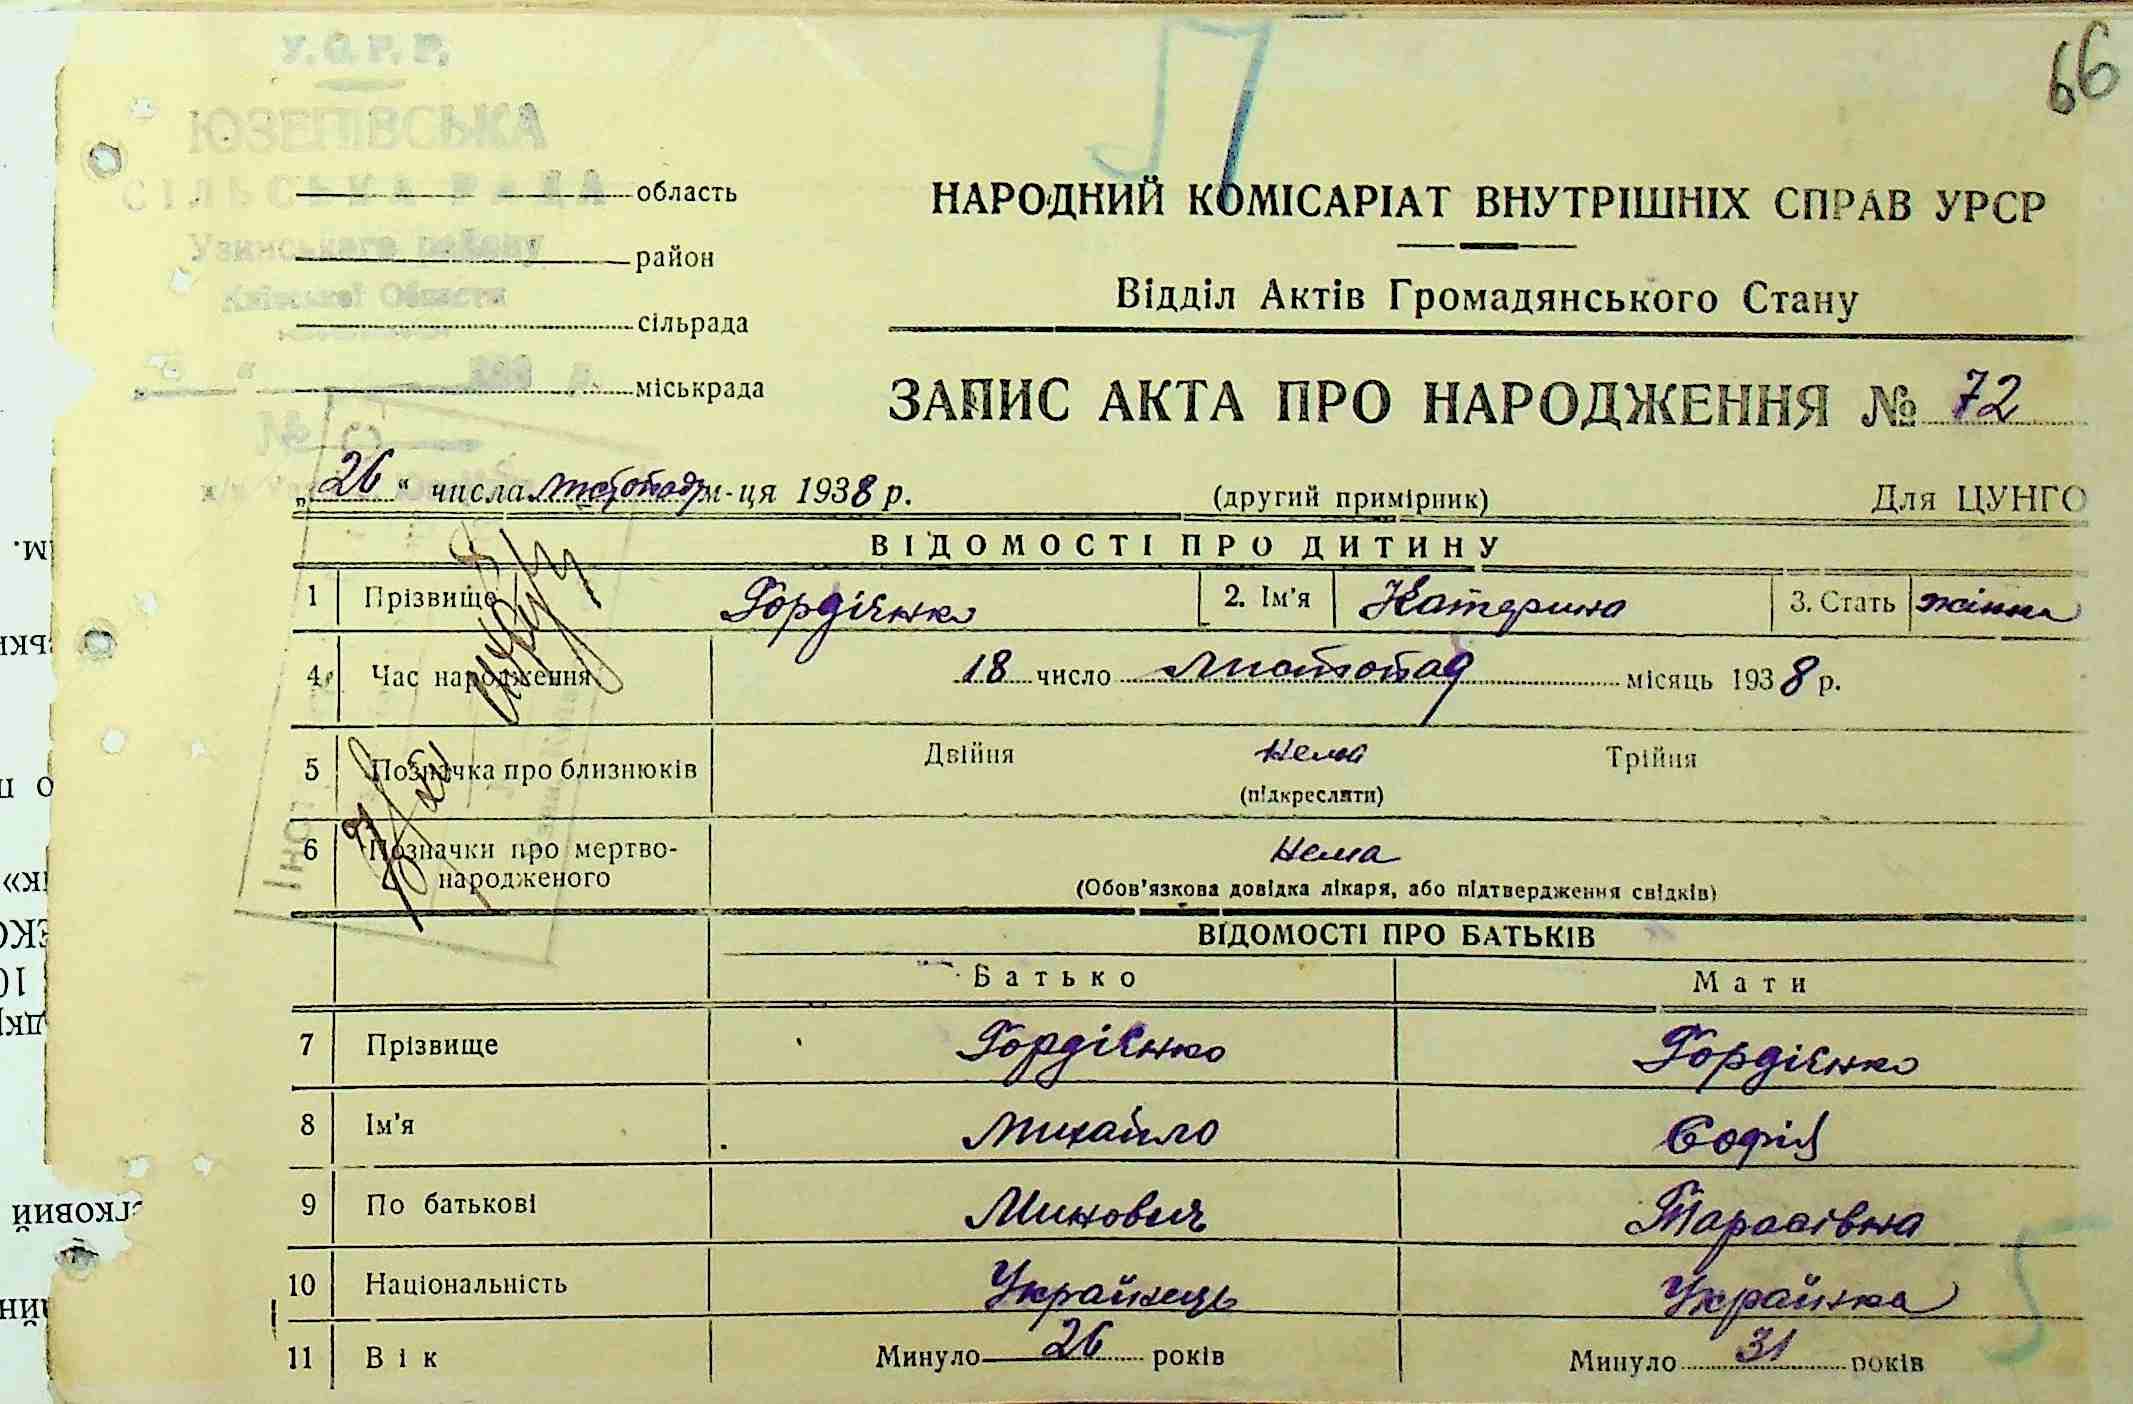 66
У. С. Р. Р.
ЮЗЕПІВСЬКА
СІЛЬСЬКА РАДА
Узинського району
Київської Області
область
район
сільрада
міськрада
НАРОДНИЙ КОМІСАРІАТ ВНУТРІШНІХ СПРАВ УРСР
Відділ Актів Громадянського Стану
ЗАПИС АКТА ПРО НАРОДЖЕННЯ № 72
„26“ числа листопада м-ця 1938 р.
(другий примірник) Для ЦУНГО
ВІДОМОСТІ ПРО ДИТИНУ
1 Прізвище Гордієнко 2. Ім'я Катерина 3. Стать жіноча
4 Час народження 18 число Листопад місяць 1938 р.
5 Позначка про близнюків Двійня нема Трійня
(підкреслити)
6 Позначки про мертво-
народженого нема
(Обов'язкова довідка лікаря, або підтвердження свідків)
ВІДОМОСТІ ПРО БАТЬКІВ
Батько Мати
7 Прізвище Гордієнко Гордієнко
8 Ім'я Михайло Софія
9 По батькові Минович Тарасівна
10 Національність Українець Українка
11 Вік Минуло 26 років Минуло 31 років